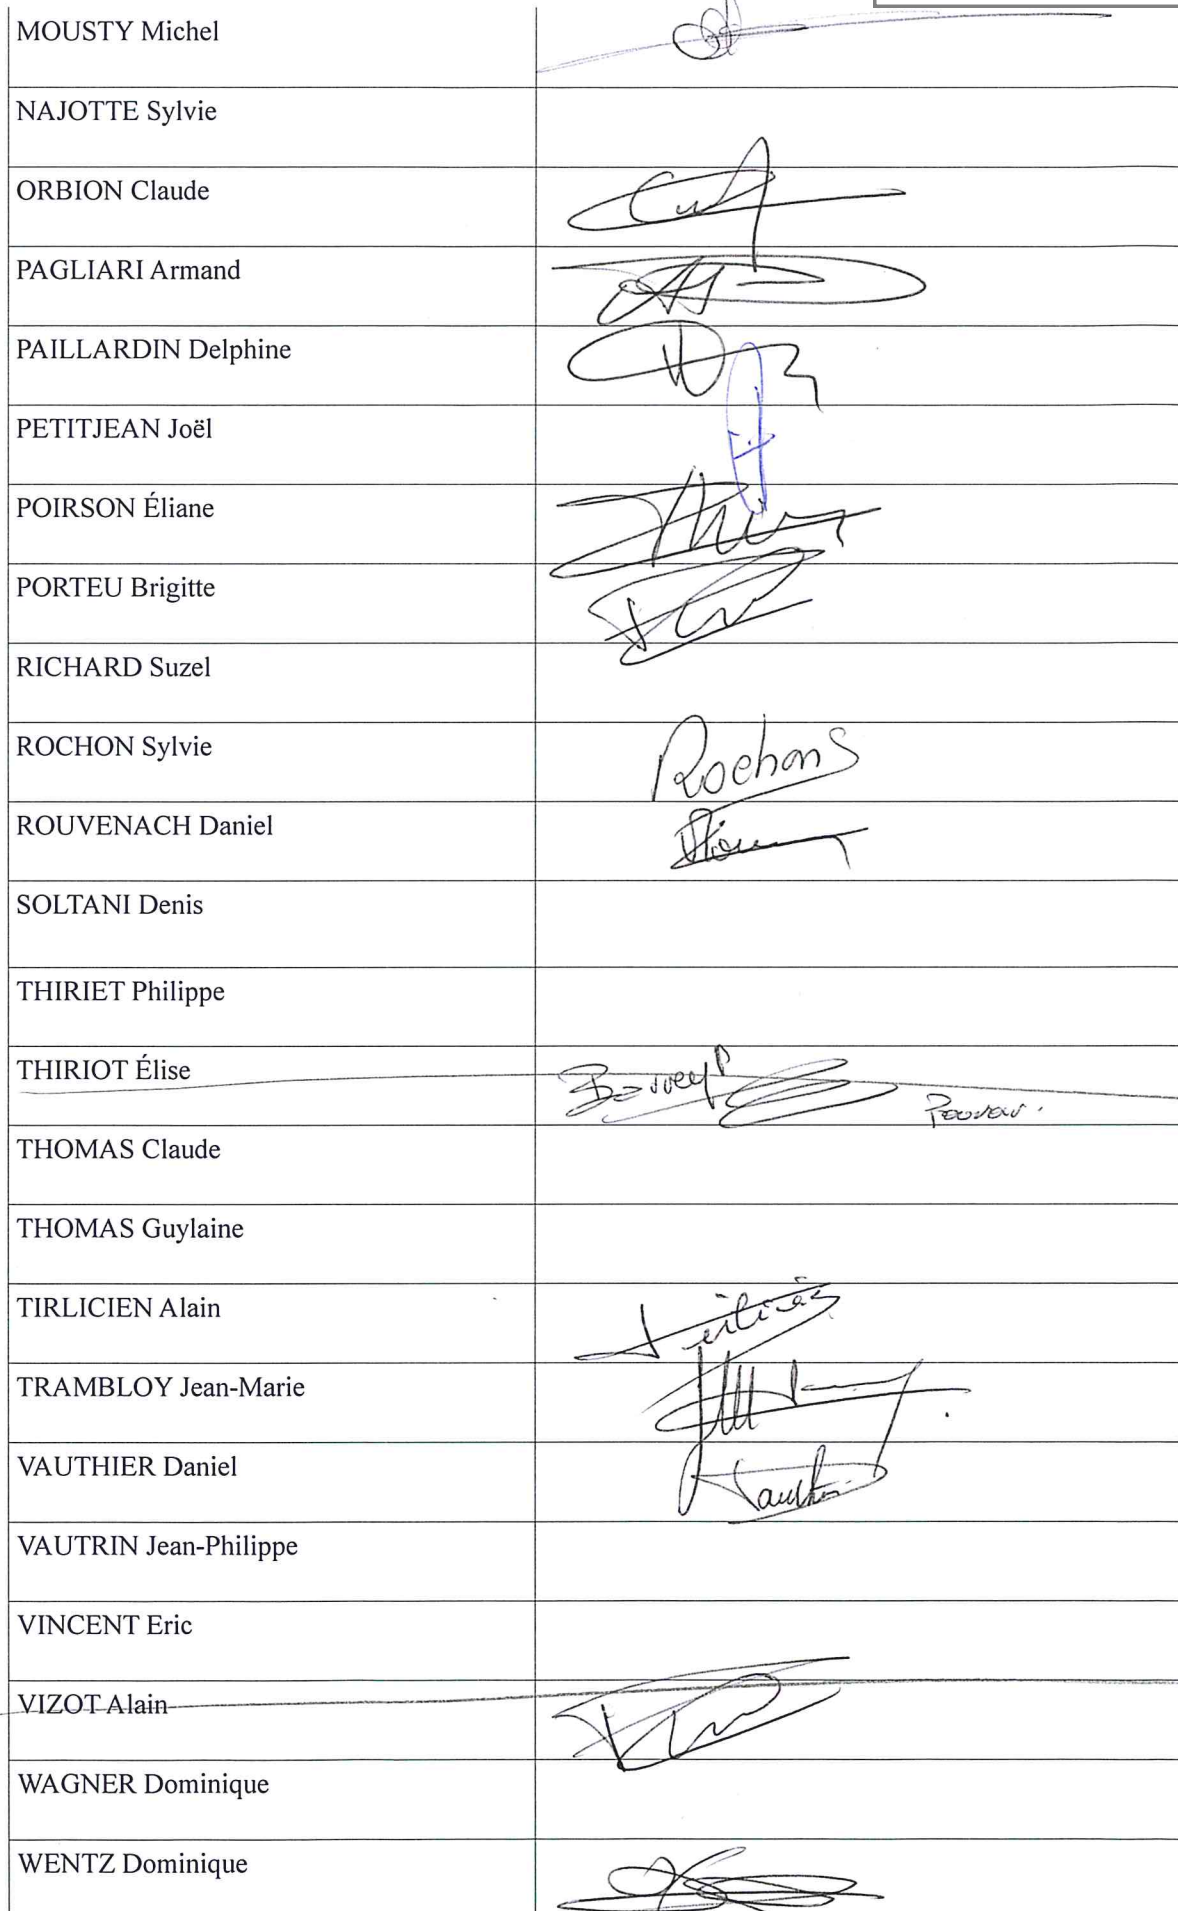 MOUSTY Michel
NAJOTTE Sylvie
ORBION Claude
PAGLIARI Armand
PAILLARDIN Delphine
PETITJEAN Joël
POIRSON Éliane
PORTEU Brigitte
RICHARD Suzel
ROCHON Sylvie
Rochon S
ROUVENACH Daniel
SOLTANI Denis
THIRIET Philippe
THIRIOT Élise
THOMAS Claude
THOMAS Guylaine
TIRLICIEN Alain
TRAMBLOY Jean-Marie
VAUTHIER Daniel
VAUTRIN Jean-Philippe
VINCENT Eric
VIZOT Alain
WAGNER Dominique
WENTZ Dominique